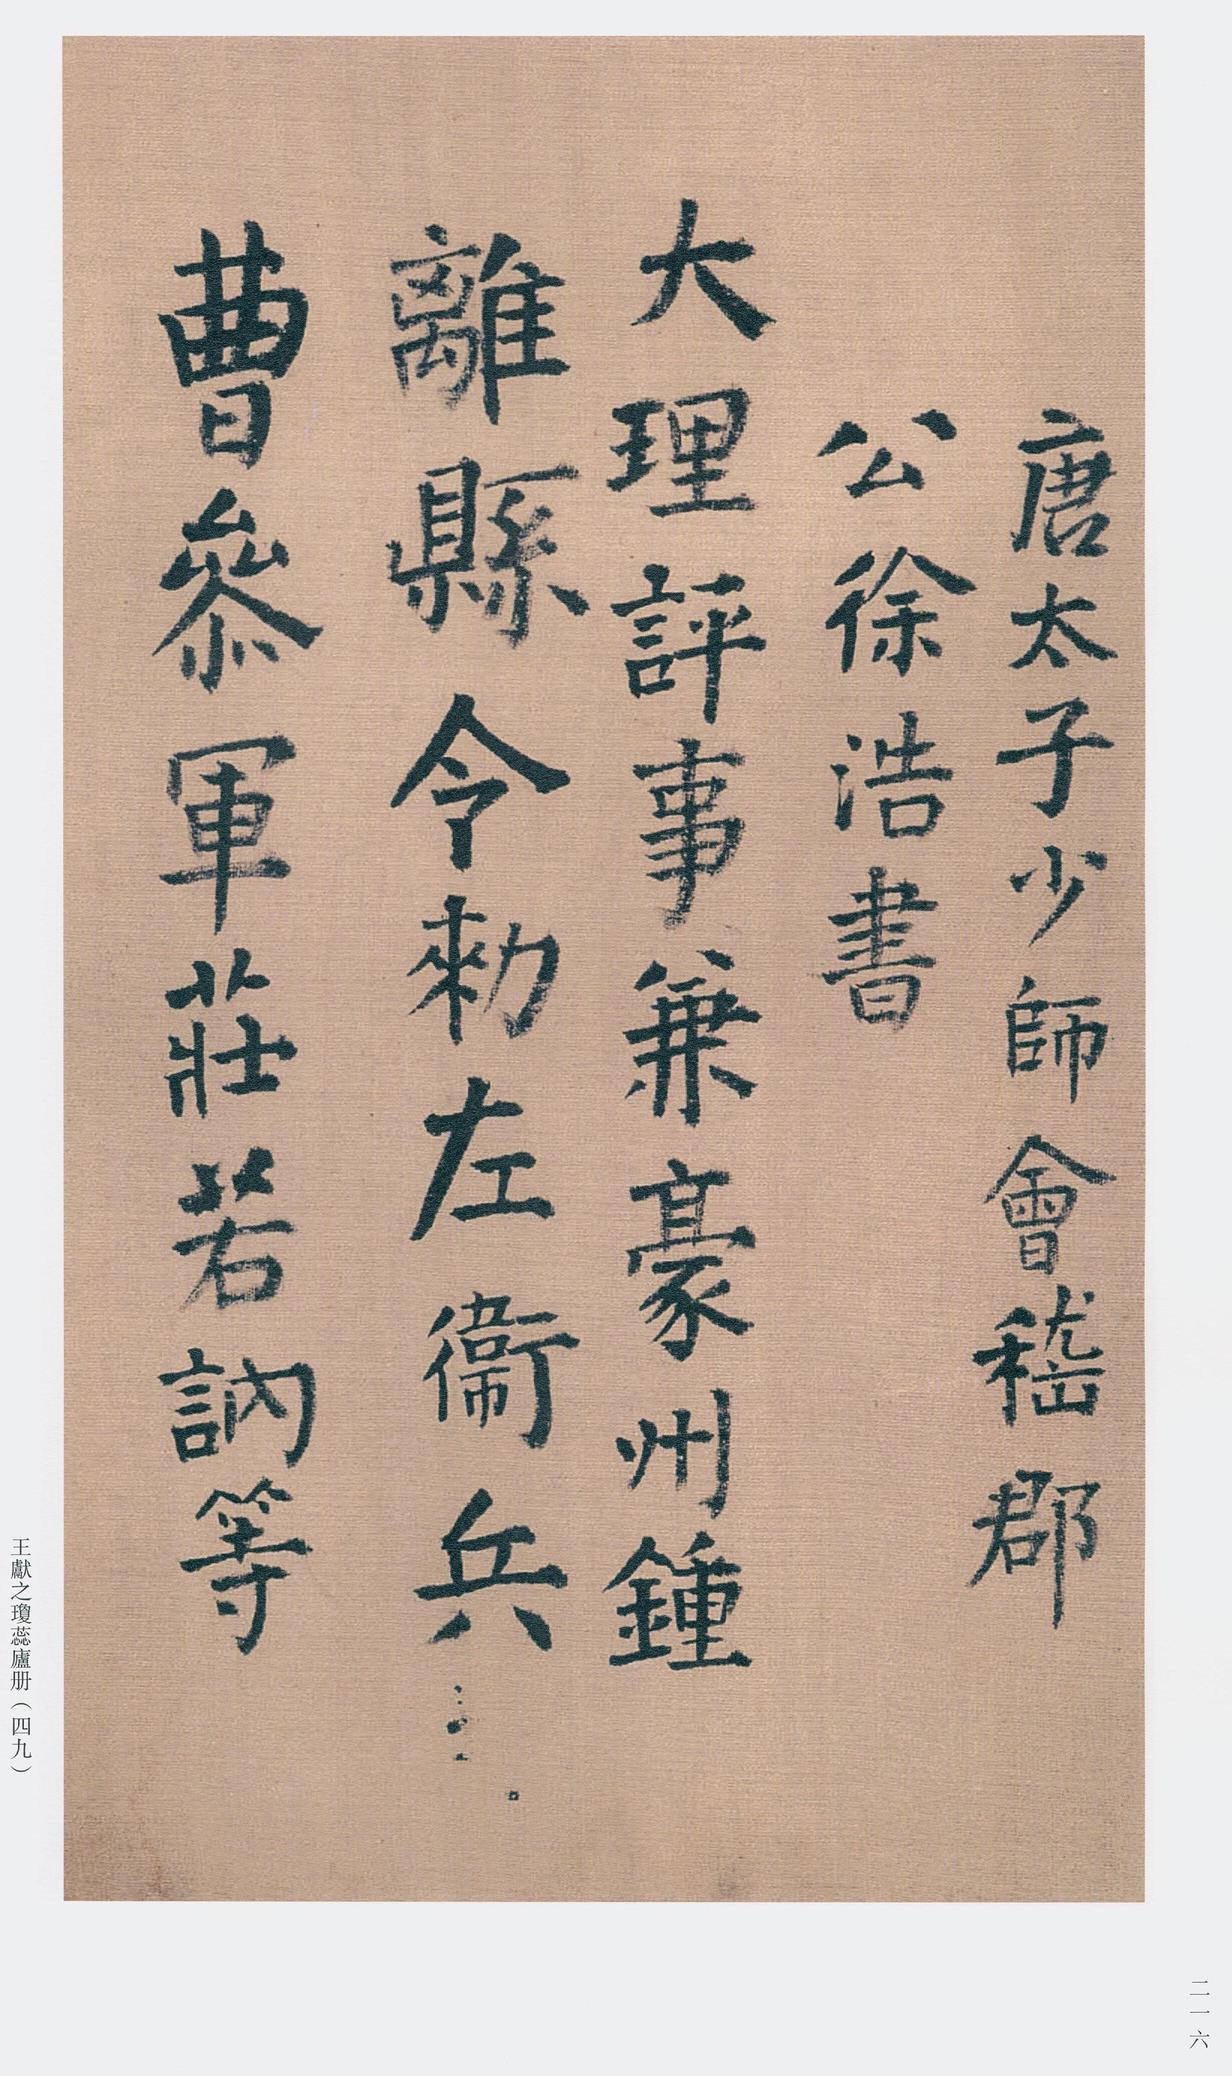 唐太子少師會稽郡
公徐浩書
大理評事兼豪州鍾
離縣令勑左衞兵
曹參軍莊若訥等
王獻之瓊蕊廬册（四九）
二一六